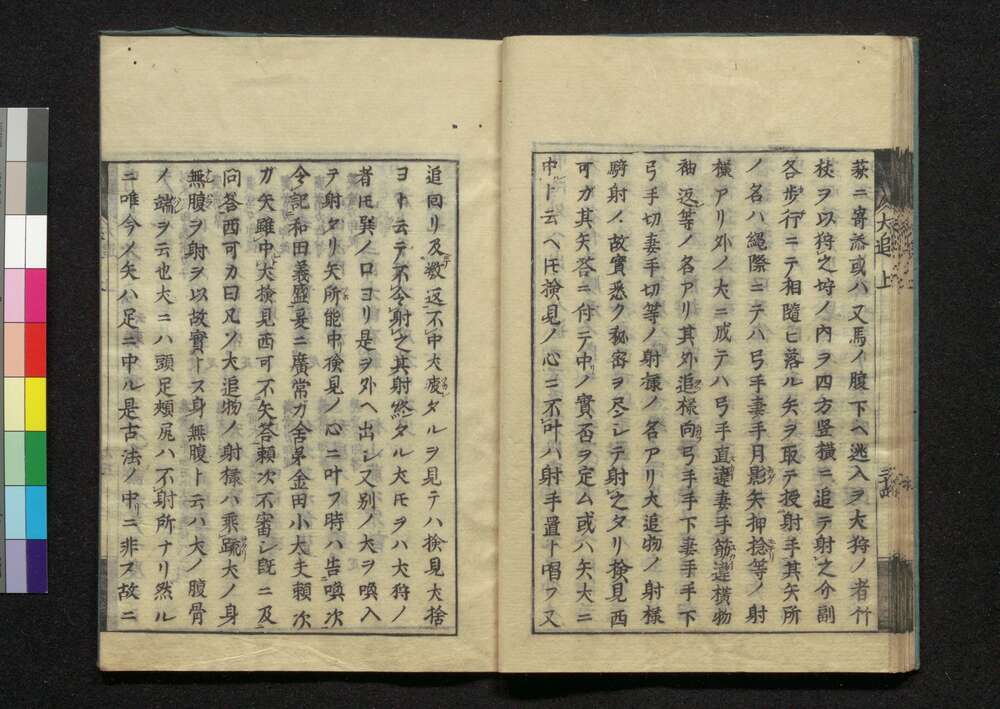 萩ニ寄添或ハ又馬ノ腹下ヘ逃入ヲ犬狩ノ者竹
杖ヲ以狩之埒ノ内ヲ四方竪横ニ追テ射之介副
各歩行ニテ相隨ヒ落ル矢ヲ取テ授射手其矢所
ノ名ハ縄際ニテハ弓手妻手月影矢押捻等ノ射
様アリ外ノ犬ニ成テハ弓手直違妻手筋違横物
袖返等ノ名アリ其外追様向弓手手下妻手手下
弓手切妻手切等ノ射様ノ名アリ犬追物ノ射様
騎射ノ故實悉ク秘密ヲ尽シテ射之タリ検見西
可カ其矢答ニ付テ中ノ實否ヲ定ム或ハ矢犬ニ
中ト云ヘ𪜈検見ノ心ニ不叶ハ射手置ト唱フ又
追回リ及数返不中犬疲タルヲ見テハ検見犬捨
ヨト云テ不令射之其射然タル犬𪜈ヲハ犬狩ノ
者𪜈巽ノ口ヨリ是ヲ外ヘ出シ又別ノ犬ヲ喚入
テ射タリ矢所能中検見ノ心ニ叶フ時ハ告喚次
令記和田義盛爰ニ廣常カ舎弟金田小大夫頼次
カ矢雖中犬検見西可不矢答頼次不審シ既ニ及
問答西可カ曰凡ソ犬追物ノ射様ハ乘疏犬ノ身
無腹ヲ射ヲ以故實トス身無腹ト云ハ犬ノ腹骨
ノ端ヲ云也犬ニハ頭足頬尻ハ不射所ナリ然ル
ニ唯今ノ矢ハ足ニ中ル是古法ノ中リニ非ス故ニ
犬追 上